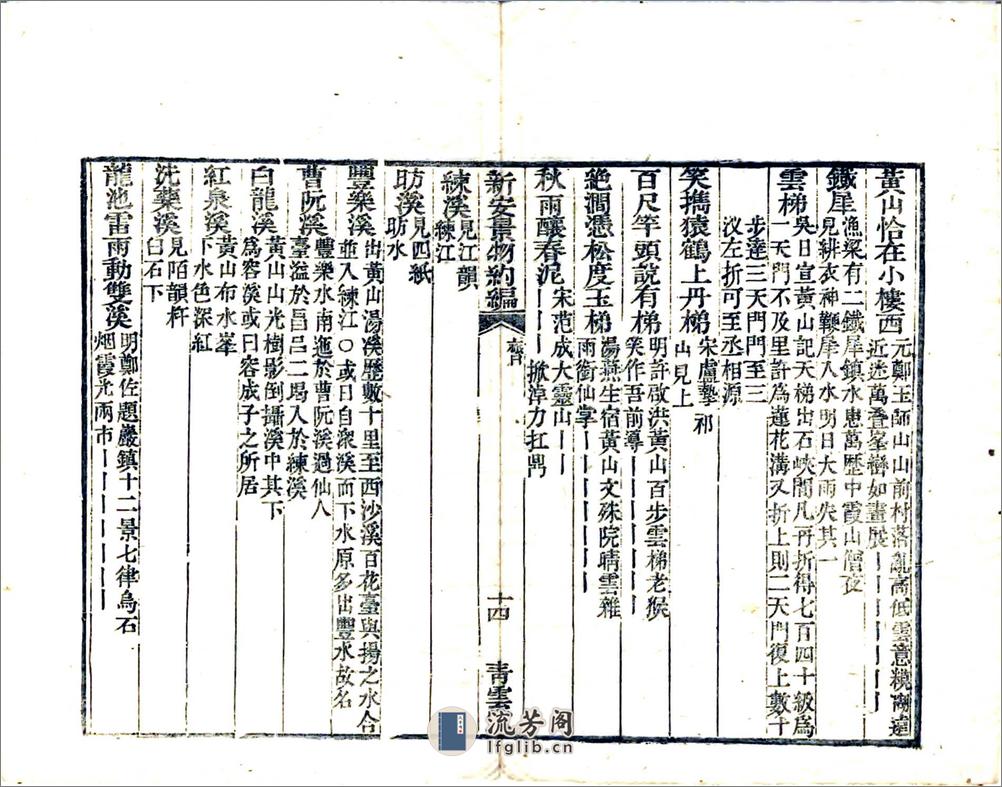 黃山恰在小樓西 元鄭玉師山山前村落亂高低雲意繞
近迷萬疊峯巒如畫展
鐵犀 漁梁有二鐵犀鎮水患萬歷中霞山僧夜
見緋衣神鞭犀入水明日大雨失其一
雲梯 吳日宣黃山記天梯出石峽間凡再折得七百四十級爲
一天門不及里許爲蓮花溝又折上則二天門復上數十
步達三天門門至三
汊左折可至丞相源
笑攜猿鶴上丹梯 宋盧摯祁
山見上
百尺竿頭說有梯 明許啟洪黃山百步雲梯老猴
笑作吾前導
絶澗憑松度玉梯 湯燕生宿黃山文殊院晴雲雜
雨銜仙掌
秋雨釀春泥 宋范成大靈山
掀淖力扛鼎
新安景物約編 十四 青雲
練溪 見江韻
練江
昉溪 見四紙
昉水
豐樂溪 出黃山湯溪歷數十里至西沙溪百花臺與揚之水合
並入練江〇或曰自衆溪而下水原多出豐水故名
曹阮溪 豐樂水南迤於曹阮溪過仙人
臺溢於昌呂二堨入於練溪
白龍溪 黃山山光樹影倒攝溪中其下
爲容溪或曰容成子之所居
紅泉溪 黃山布水峯
下水色深紅
洗藥溪 見陌韻杵
臼石下
龍池雷雨動雙溪 明鄭佐題巖鎮十二景七律烏石
烟霞光兩市
流芳阁
lfglib.cn